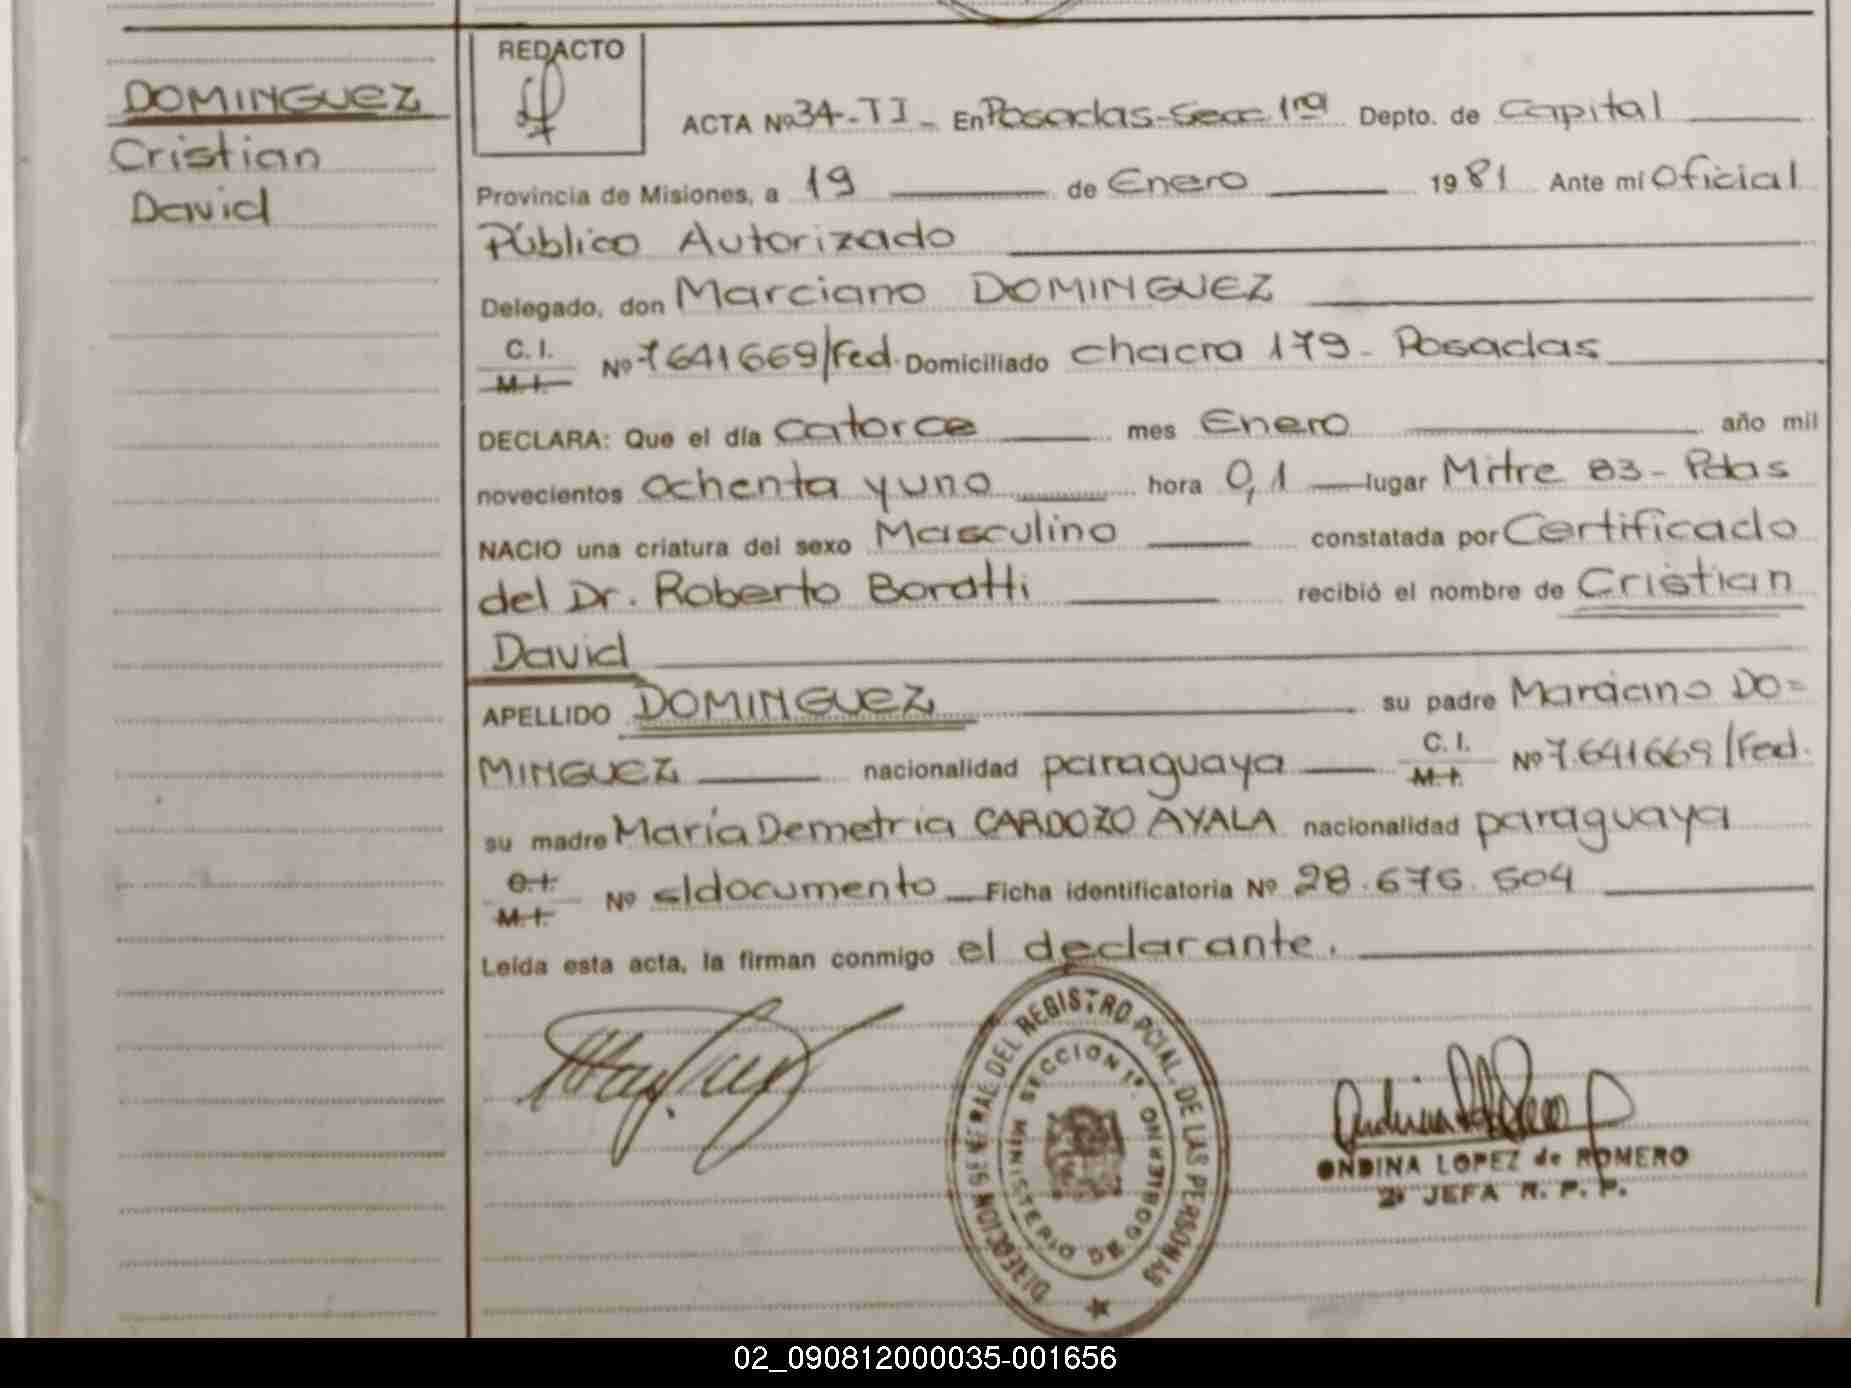 REDACTO
DOMINGUEZ
Cristian
David
ACTA Nº 34-TI - En Posadas-Secc 1ra Depto. de Capital
Provincia de Misiones, a 19 de Enero 1981 Ante mí Oficial
Público Autorizado
Delegado, don Marciano DOMINGUEZ
C. I.
M. I. Nº 7641669/Fed. Domiciliado chacra 179 - Posadas
DECLARA: Que el día catorce mes Enero año mil
novecientos ochenta y uno hora 0,1 lugar Mitre 83 - Pdas
NACIO una criatura del sexo Masculino constatada por Certificado
del Dr. Roberto recibió el nombre de Cristian
David
APELLIDO DOMINGUEZ su padre Marciano DO=
MINGUEZ nacionalidad paraguaya C. I. M. I. Nº 7.641669/Fed.
su madre María Demetria CARDOZO AYALA nacionalidad paraguaya
C. I.
M. I. Nº s/documento Ficha identificatoria Nº 28.676.504
Leída esta acta, la firman conmigo el declarante.
DIRECCION GENERAL DEL REGISTRO PCIAL. DE LAS PERSONAS
SECCION 1ª.
MINISTERIO DE GOBIERNO
ONDINA LOPEZ de ROMERO
2ª JEFA R. P. P.
02_090812000035-001656